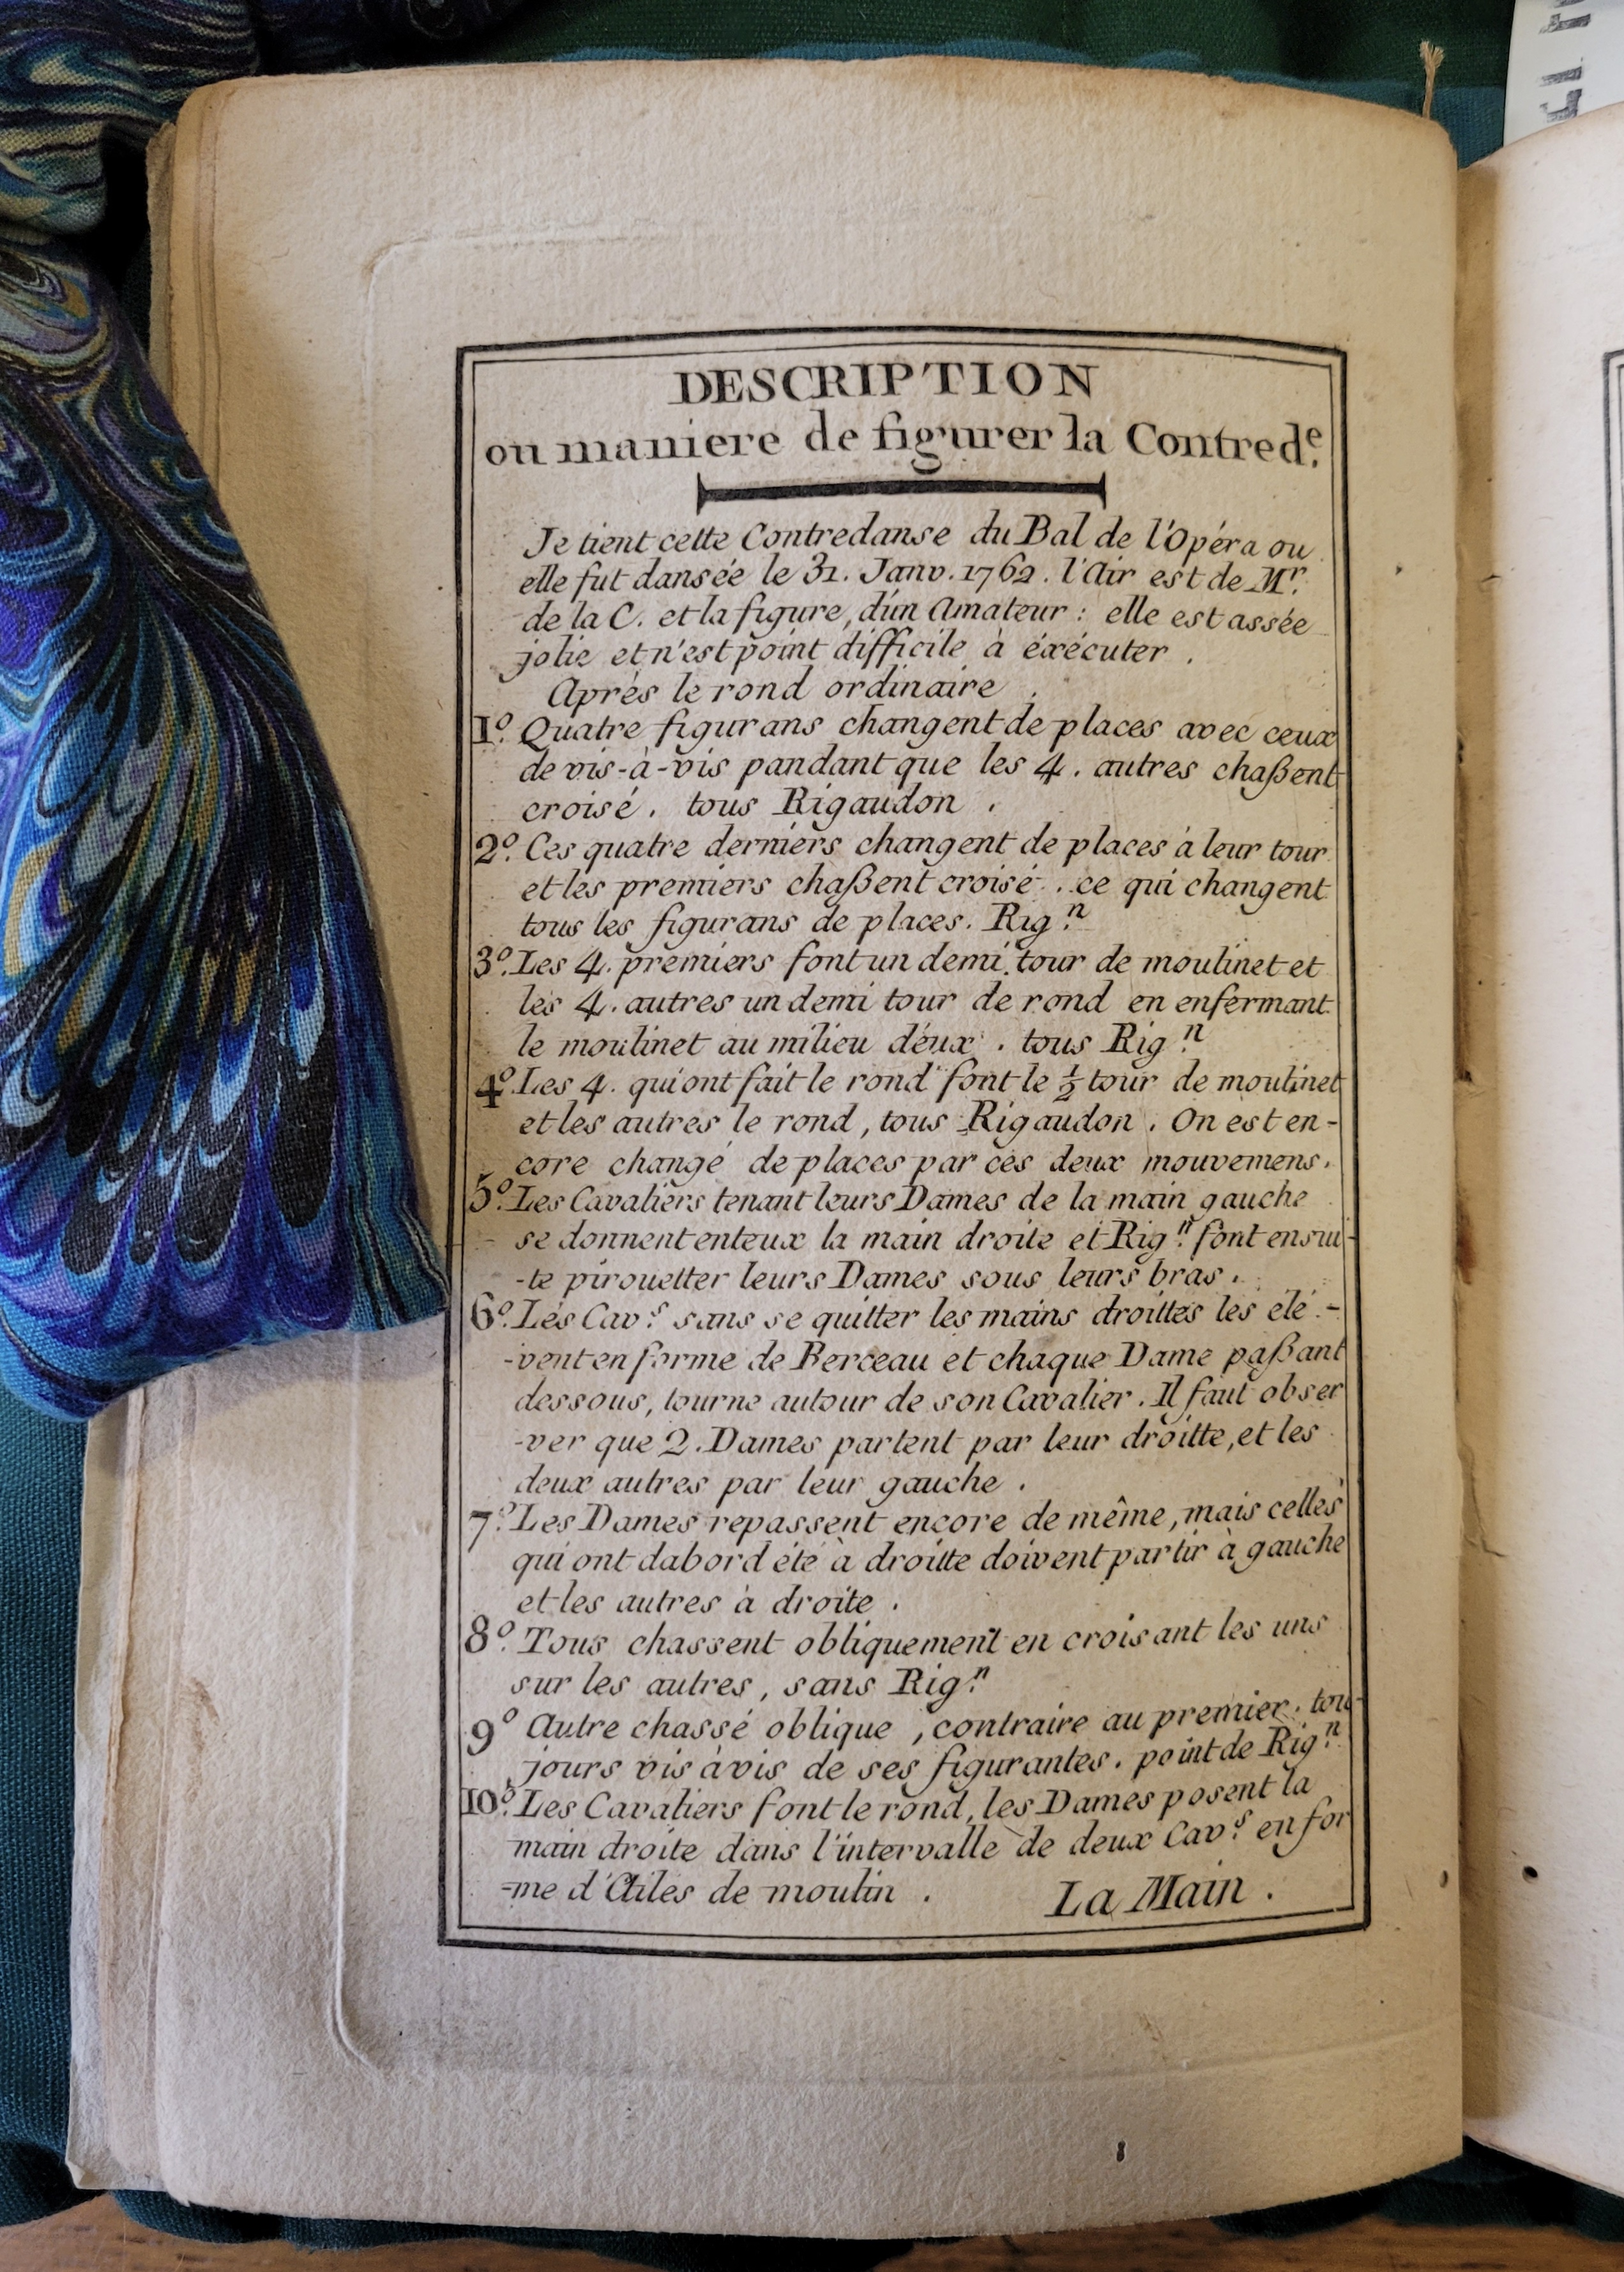 DESCRIPTION
ou maniere de figurer la Contred.e
Je tient cette Contredanse du Bal de l'Opéra ou
elle fut dansée le 31. Janv. 1762. l'Air est de Mr.
de la C. et la figure, d'ún Amateur : elle est assée
jolie et n'est point difficile à éxécuter .
Après le rond ordinaire .
1.o Quatre figurans changent de places avec ceux
de vis-à-vis pandant que les 4. autres chaßent
croisé. tous Rigaudon .
2.o Ces quatre derniers changent de places à leur tour
et les premiers chaßent croisé . . ce qui changent
tous les figurans de places. Rig.n
3.o Les 4. premiers font un demi tour de moulinet et
les 4. autres un demi tour de rond en enfermant
le moulinet au milieu d'éux . tous Rig.n
4.o Les 4. qui ont fait le rond font le ½ tour de moulinet
et les autres le rond, tous Rigaudon . On est en-
core changé de places par ces deux mouvemens.
5.o Les Cavaliers tenant leurs Dames de la main gauche
se donnent enteux la main droite et Rig.n font ensui-
-te pirouetter leurs Dames sous leurs bras .
6.o Les Cav.s sans se quitter les mains droittes les élé-
-vent en forme de Berceau et chaque Dame paßant
dessous, tourne autour de son Cavalier. Il faut obser
-ver que 2. Dames partent par leur droitte, et les
deux autres par leur gauche .
7.o Les Dames repassent encore de même, mais celles
qui ont dabord été à droitte doivent partir à gauche
et les autres à droite .
8.o Tous chassent obliquement en croisant les uns
sur les autres, sans Rig.n
9o Autre chassé oblique , contraire au premier. tou-
jours vis à vis de ses figurantes. point de Rig.n
10.o Les Cavaliers font le rond, les Dames posent la
main droite dans l'intervalle de deux Cav.s en for
-me d'Ailes de moulin . La Main .